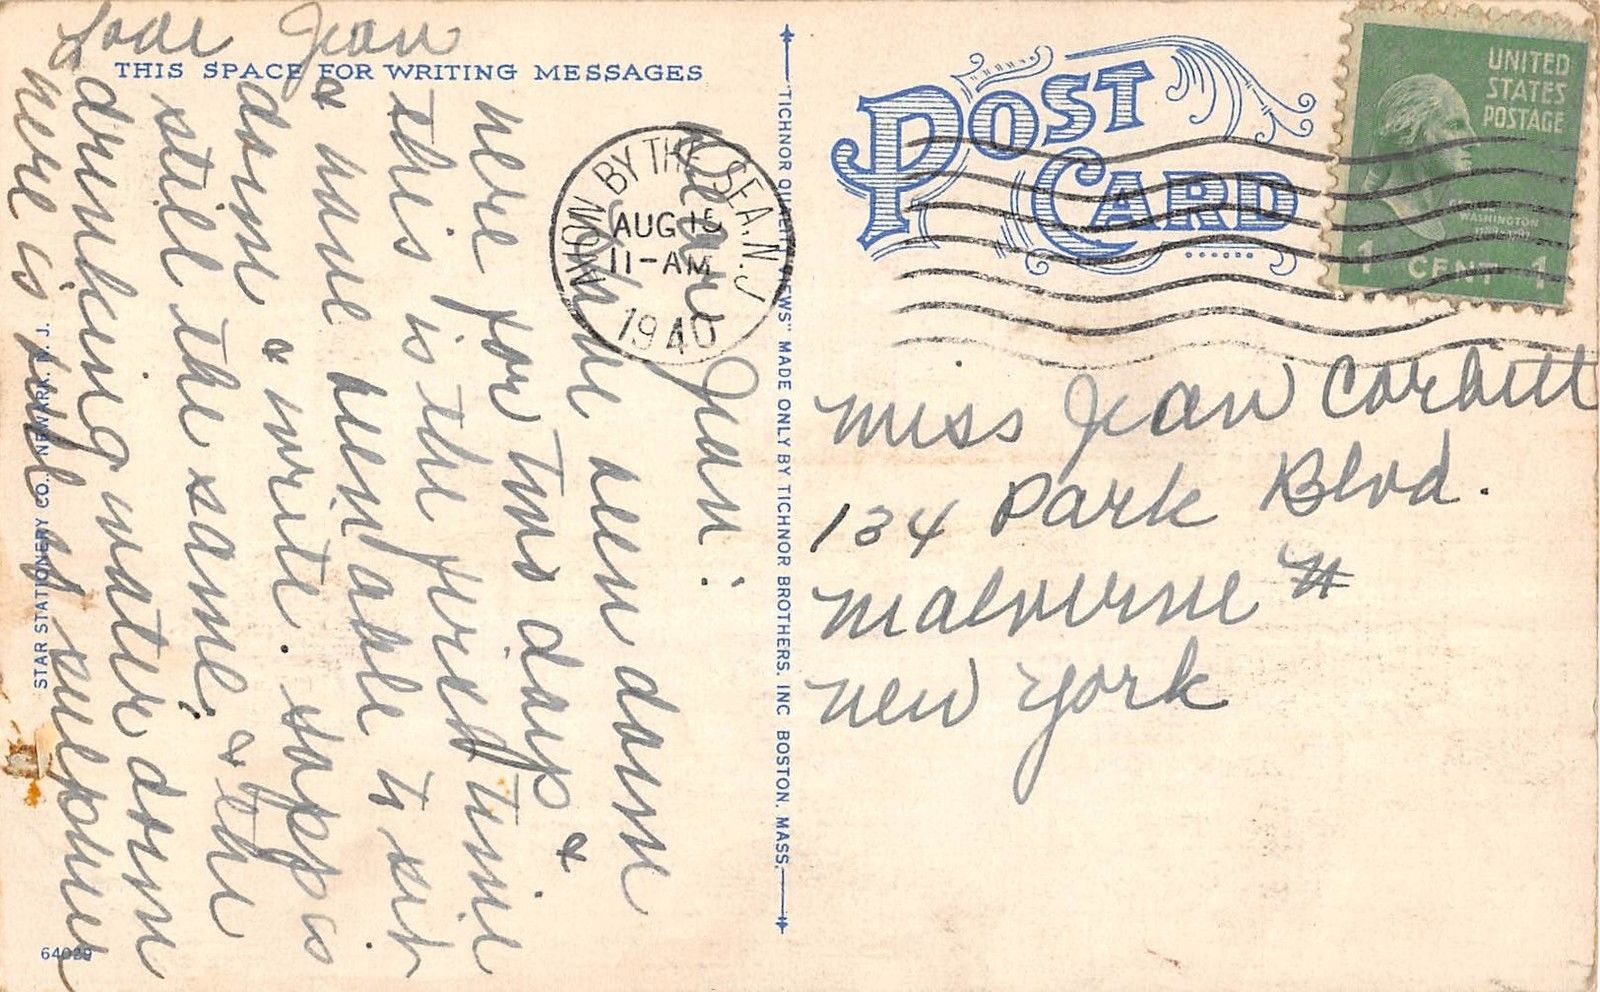 THIS SPACE FOR WRITING MESSAGES
Dear Jean:
I've been down
here for two days &
this is the first time
I have been able to sit
down & write. Sapp is
still the same. & the
drinking water down
here is still as sulphur
Love Jean
WOOD BY THE SEA. N.J.
AUG 15
11-AM
1940
POST CARD
UNITED
STATES
POSTAGE
WASHINGTON
1 CENT 1
Miss Jean Corbett
134 Park Blvd.
Malverne
New York
"TICHNOR QUALITY VIEWS" MADE ONLY BY TICHNOR BROTHERS. INC BOSTON. MASS.
STAR STATIONERY CO. NEWARK. N. J.
64029